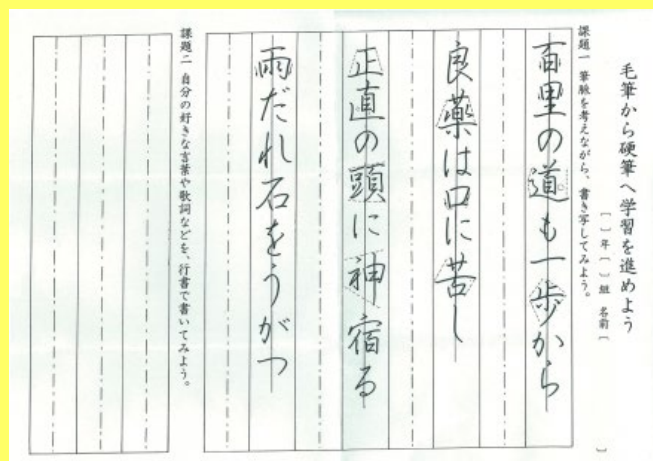 毛筆から硬筆へ学習を進めよう
〔　〕年〔　〕組　名前〔　　　〕
課題一　筆脈を考えながら、書き写してみよう。
百里の道も一歩から
良薬は口に苦し
正直の頭に神宿る
雨だれ石をうがつ
課題二　自分の好きな言葉や歌詞などを、行書で書いてみよう。